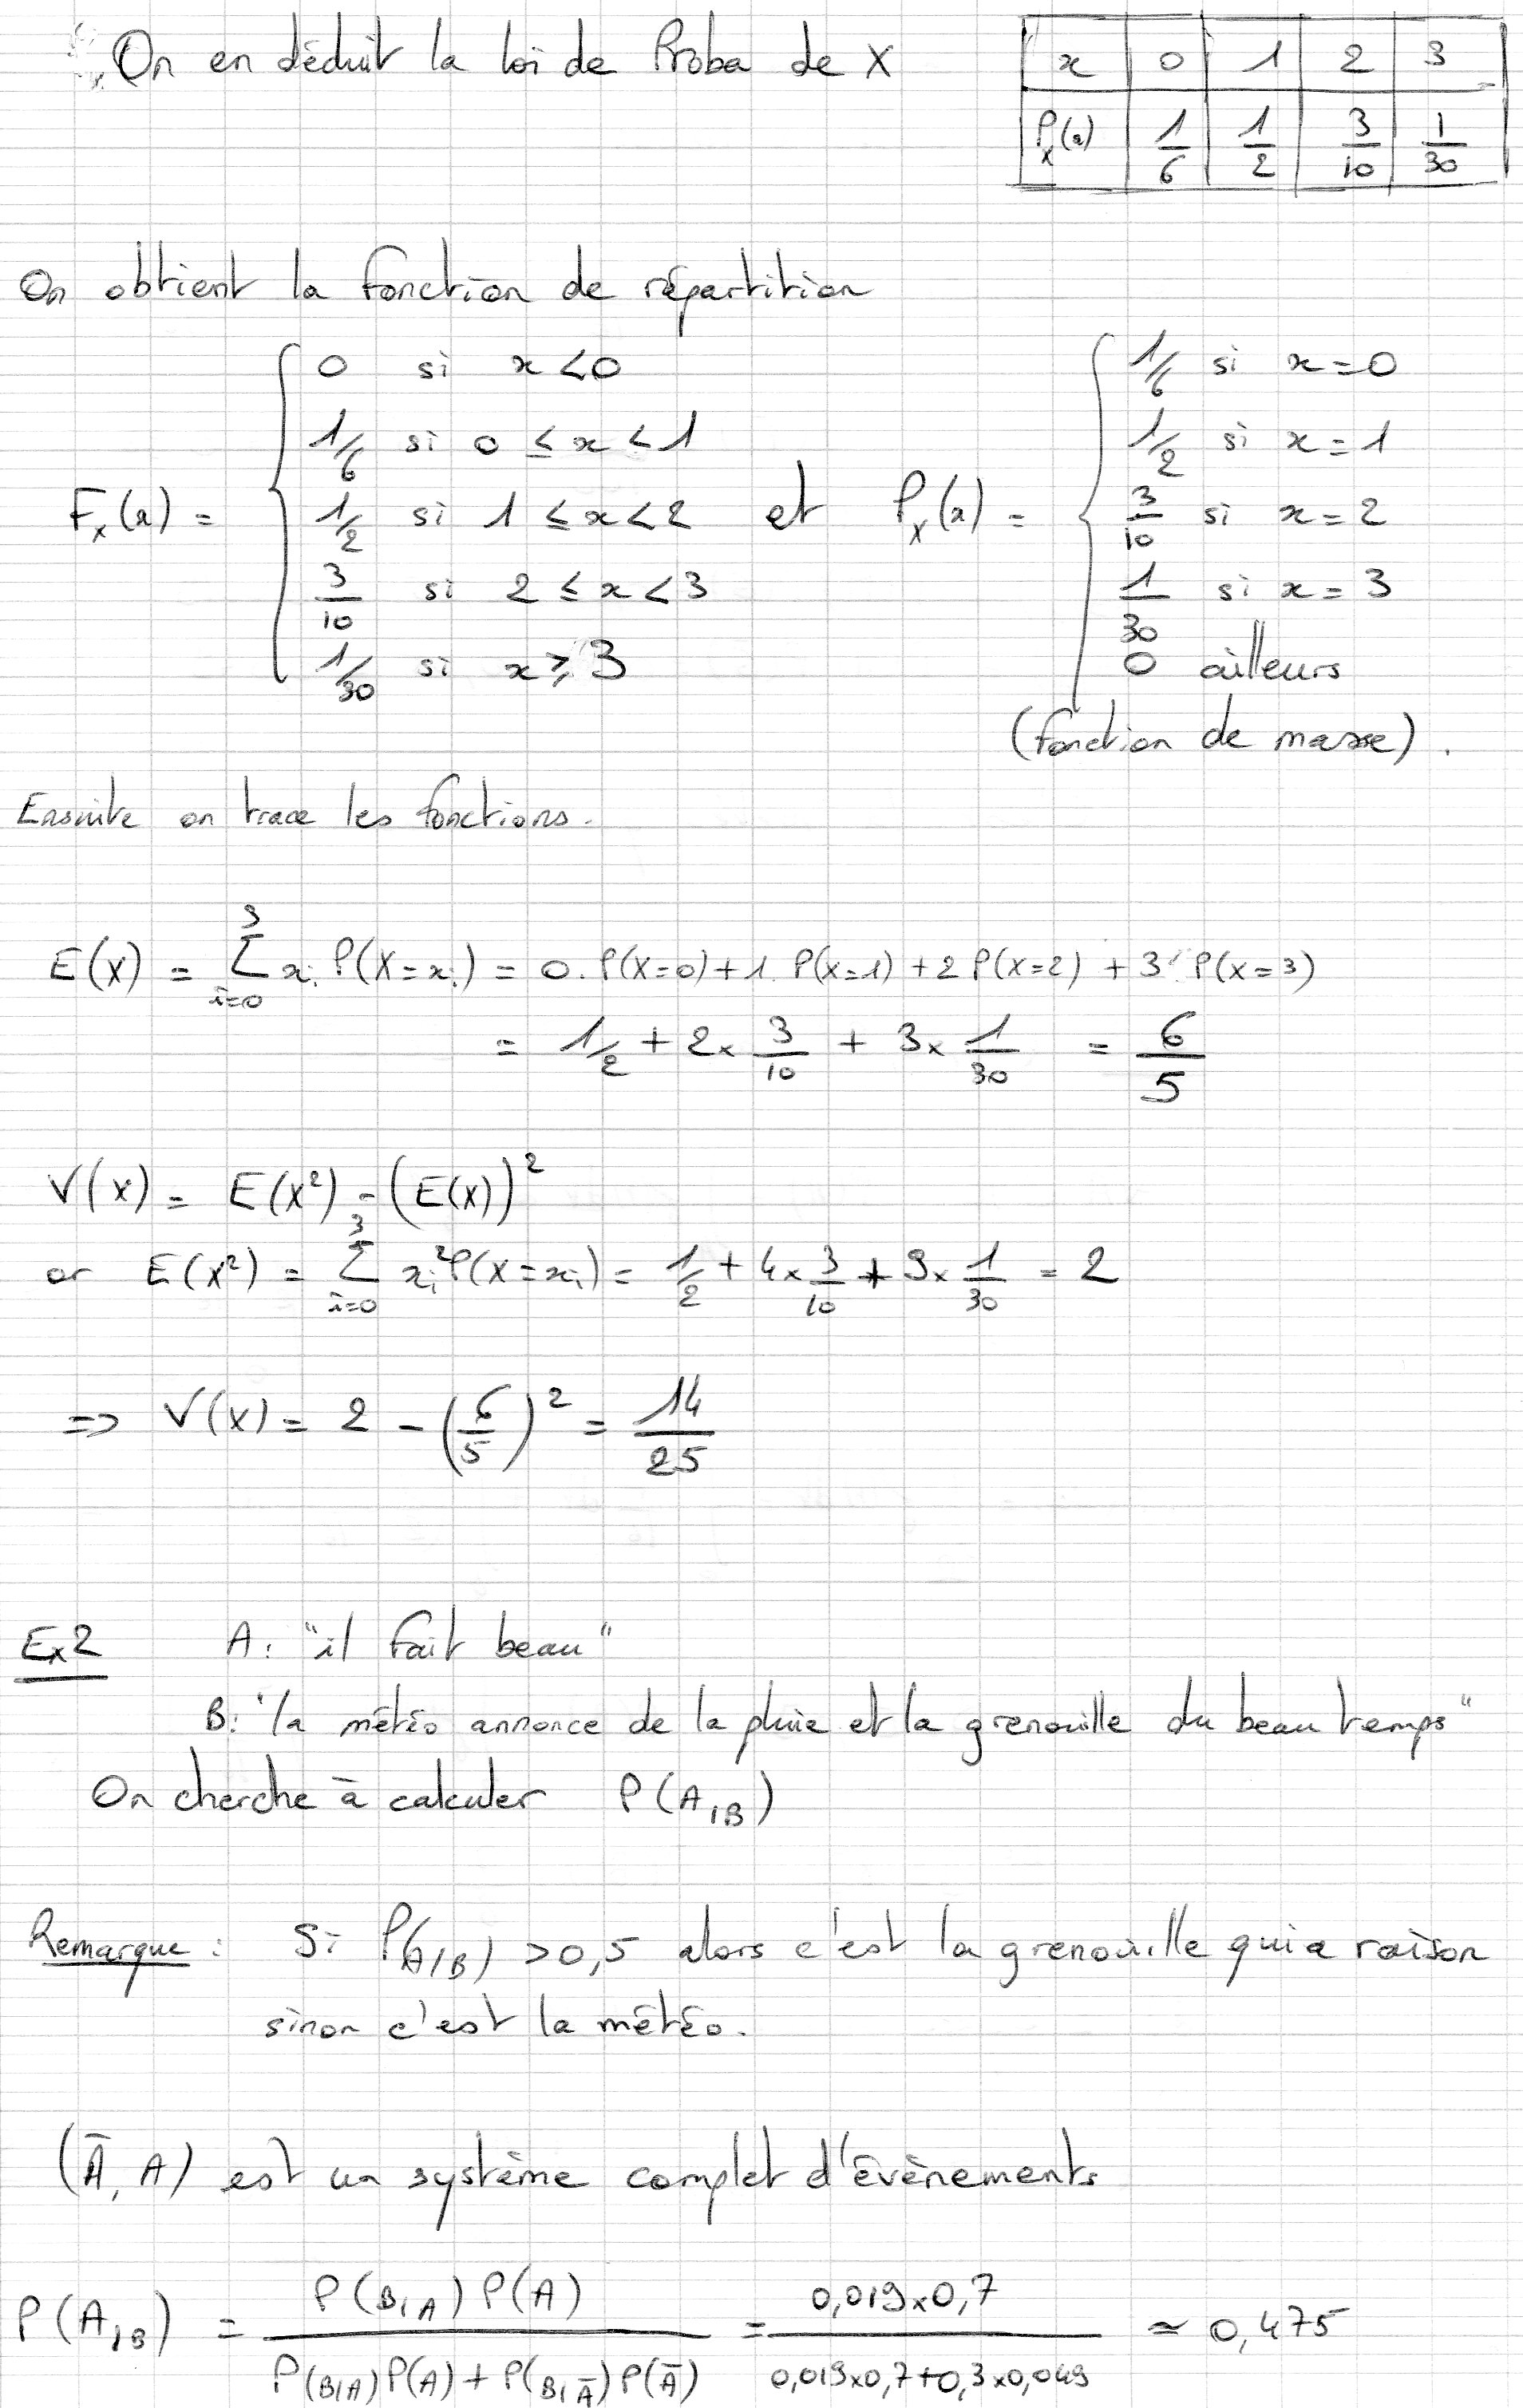 On en déduit la loi de Proba de X
x 0 1 2 3
P_X(x) 1/6 1/2 3/10 1/30
On obtient la fonction de répartition
F_X(x) = { 0 si x < 0
1/6 si 0 ≤ x < 1
1/2 si 1 ≤ x < 2
3/10 si 2 ≤ x < 3
1/30 si x ≥ 3
et P_X(x) = { 1/6 si x = 0
1/2 si x = 1
3/10 si x = 2
1/30 si x = 3
0 ailleurs
(fonction de masse).
Ensuite on trace les fonctions.
E(X) = Σ_{i=0}^{3} x_i P(X=x_i) = 0. P(X=0) + 1. P(X=1) + 2 P(X=2) + 3 P(X=3)
= 1/2 + 2 × 3/10 + 3 × 1/30 = 6/5
V(X) = E(X²) - (E(X))²
or E(X²) = Σ_{i=0}^{3} x_i² P(X=x_i) = 1/2 + 4 × 3/10 + 9 × 1/30 = 2
=> V(X) = 2 - (6/5)² = 14/25
Ex2 A: "il fait beau"
B: "la météo annonce de la pluie et la grenouille du beau temps"
On cherche à calculer P(A|B)
Remarque : Si P(A|B) > 0,5 alors c'est la grenouille qui a raison
sinon c'est la météo.
(Ā, A) est un système complet d'évènements
P(A|B) = P(B|A) P(A) / (P(B|A) P(A) + P(B|Ā) P(Ā)) = 0,019 × 0,7 / (0,019 × 0,7 + 0,3 × 0,049) ≃ 0,475